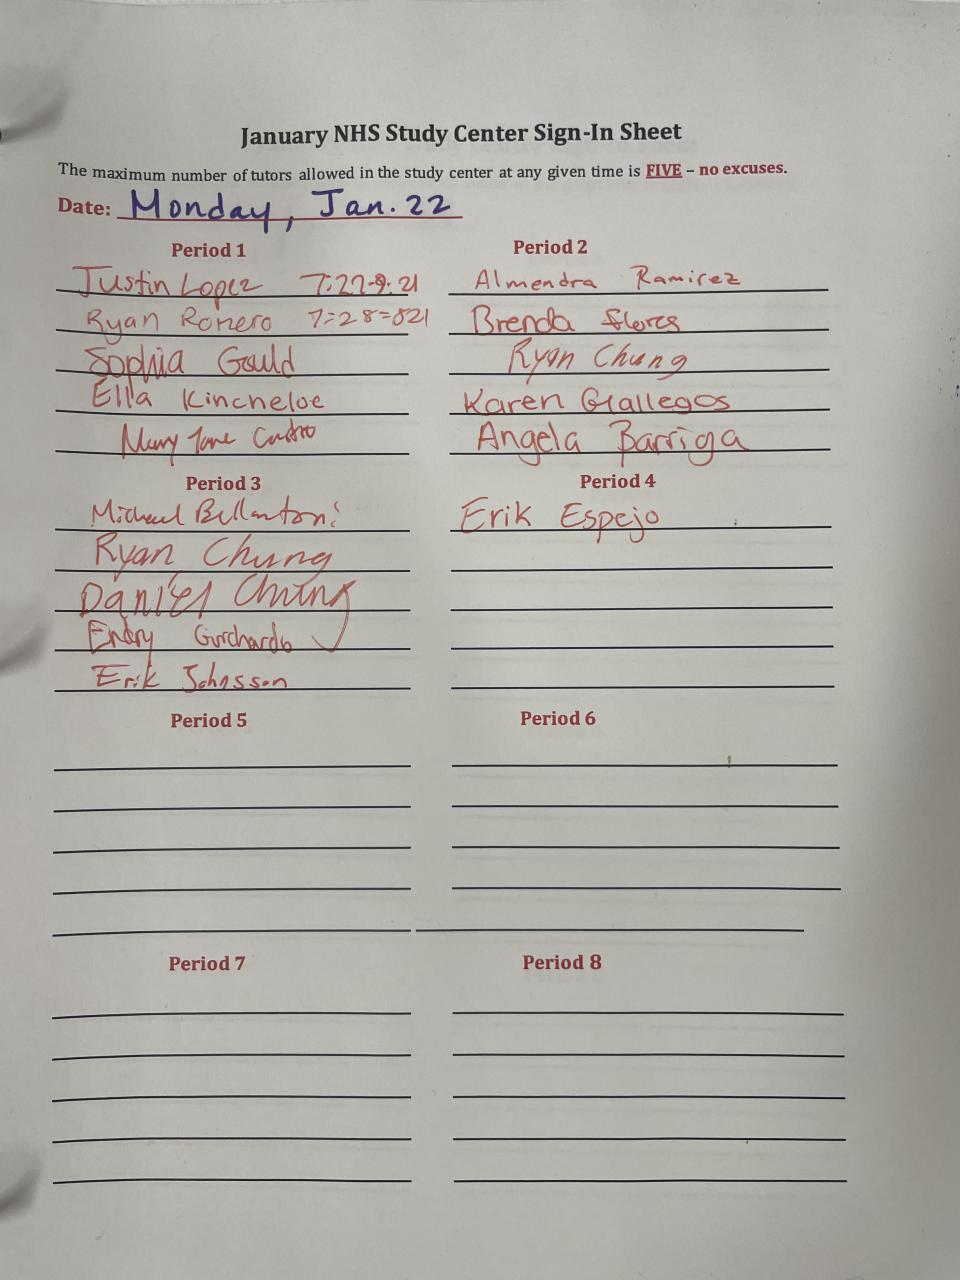 January NHS Study Center Sign-In Sheet
The maximum number of tutors allowed in the study center at any given time is FIVE – no excuses.
Date: Monday, Jan. 22
Period 1
Justin Lopez 7:27-9:21
Ryan Romero 7:28=821
Sophia Gould
Ella Kincheloe
Mary Jane Castro
Period 2
Almendra Ramirez
Brenda Flores
Ryan Chung
Karen Gallegos
Angela Barriga
Period 3
Michael Bellantoni
Ryan Chung
Daniel Chung
Endry
Erik Johnsson
Period 4
Erik Espejo
Period 5
Period 6
Period 7
Period 8